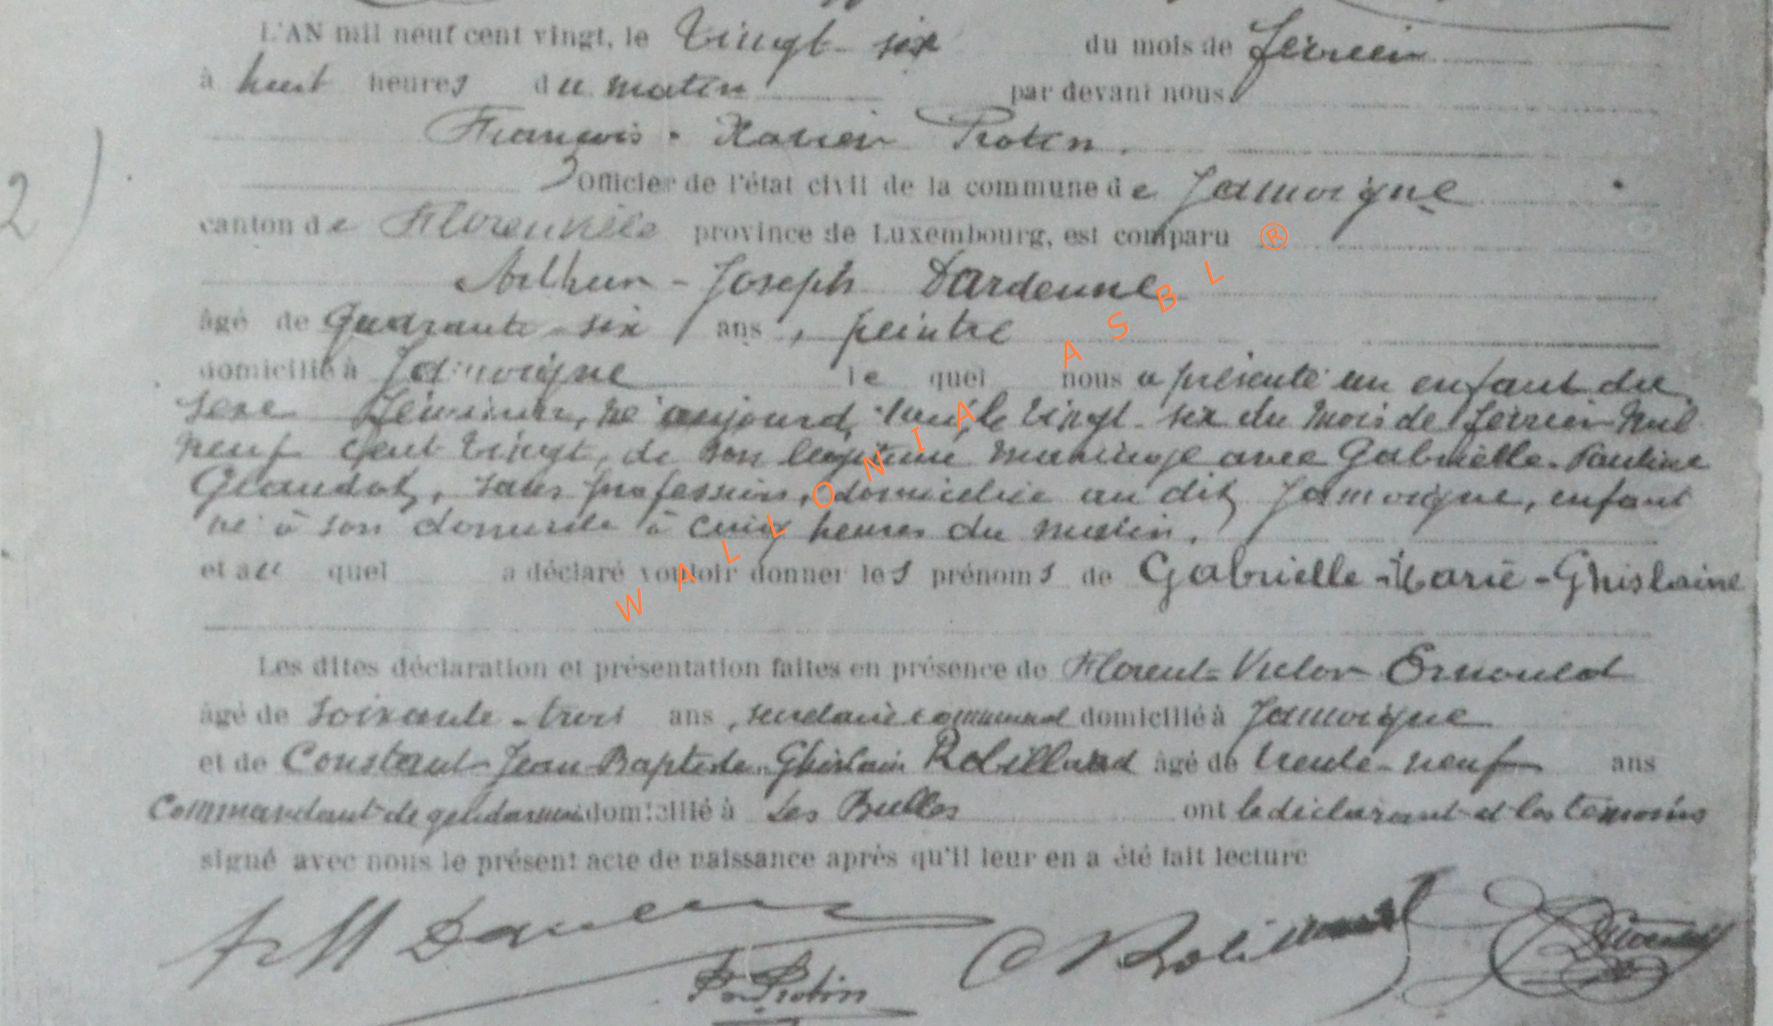 L'AN mil neuf cent vingt, le vingt-six du mois de février
à huit heures du matin par devant nous
François-Xavier Protin.
Officier de l'état civil de la commune de Jamoigne
canton de Florenville province de Luxembourg, est comparu
Arthur-Joseph Dardenne
âgé de quarante-six ans, peintre
domicilié à Jamoigne le quel nous a présenté un enfant du
sexe féminin, né aujourd'hui, le vingt-six du mois de février mil
neuf cent vingt, de son légitime mariage avec Gabrielle-Pauline
sans profession, domiciliée au dit Jamoigne, enfant
né à son domicile à cinq heures du matin.
et au quel a déclaré vouloir donner les prénoms de Gabrielle-Marie-Ghislaine
Les dites déclaration et présentation faites en présence de Florent-Victor
âgé de soixante-trois ans, secrétaire communal domicilié à Jamoigne
et de Constant-Jean-Baptiste-Ghislain Robillard âgé de trente-neuf ans
Commandant de gendarmerie domicilié à Les Bulles ont le déclarant et les témoins
signé avec nous le présent acte de naissance après qu'il leur en a été fait lecture
WALLONIA ASBL ®
2)